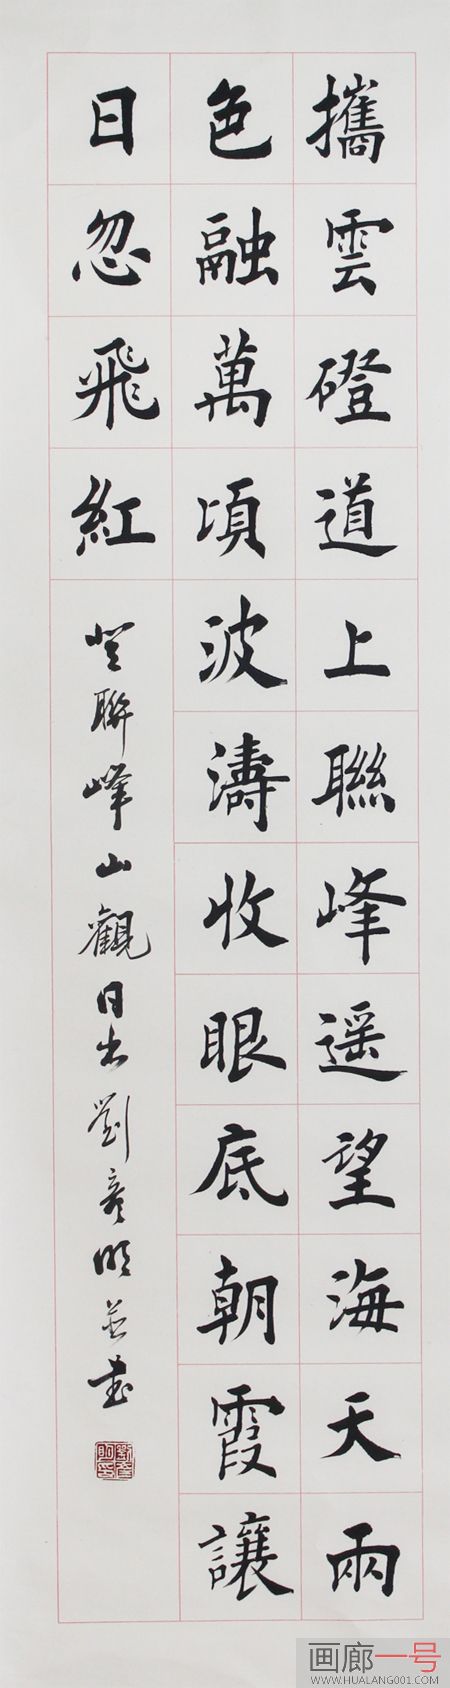 攜雲磴道上聯峰遥望海天兩
色融萬頃波濤收眼底朝霞讓
日忽飛紅
登聯峰山觀日出劉彦明並書
画廊一号
WWW.HUALANG001.COM